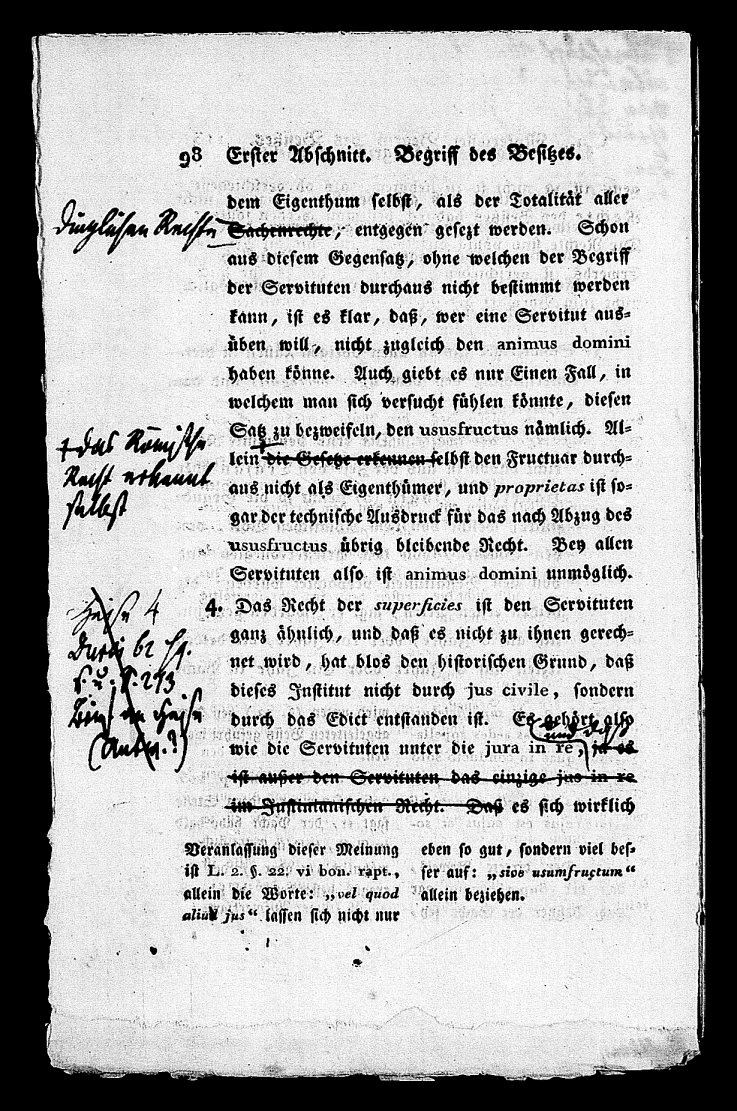 98 Erster Abschnitt. Begriff des Besitzes.
dem Eigenthum selbst, als der Totalität aller
dinglichen Rechte
Sachenrechte, entgegen gesezt werden. Schon
aus diesem Gegensatz, ohne welchen der Begriff
der Servituten durchaus nicht bestimmt werden
kann, ist es klar, daß, wer eine Servitut aus-
üben will, nicht zugleich den animus domini
haben könne. Auch giebt es nur Einen Fall, in
welchem man sich versucht fühlen könnte, diesen
Satz zu bezweifeln, den ususfructus nämlich. Al-
das Römische
Recht erkennt
selbst
lein die Gesetze erkennen selbst den Fructuar durch-
aus nicht als Eigenthümer, und proprietas ist so-
gar der technische Ausdruck für das nach Abzug des
ususfructus übrig bleibende Recht. Bey allen
Servituten also ist animus domini unmöglich.
4. Das Recht der superficies ist den Servituten
ganz ähnlich, und daß es nicht zu ihnen gerech-
net wird, hat blos den historischen Grund, daß
dieses Institut nicht durch jus civile, sondern
durch das Edict entstanden ist. Es gehört also
und daß
wie die Servituten unter die jura in re, ja es
ist außer den Servituten das einzige jus in re
im Justinianischen Recht. Daß es sich wirklich
Heise 4
62
S. 273
Heise
Veranlassung dieser Meinung
ist L. 2. §. 22. vi bon. rapt.,
allein die Worte: „vel quod
aliud jus“ lassen sich nicht nur
eben so gut, sondern viel bes-
ser auf: „sive usumfructum“
allein beziehen.